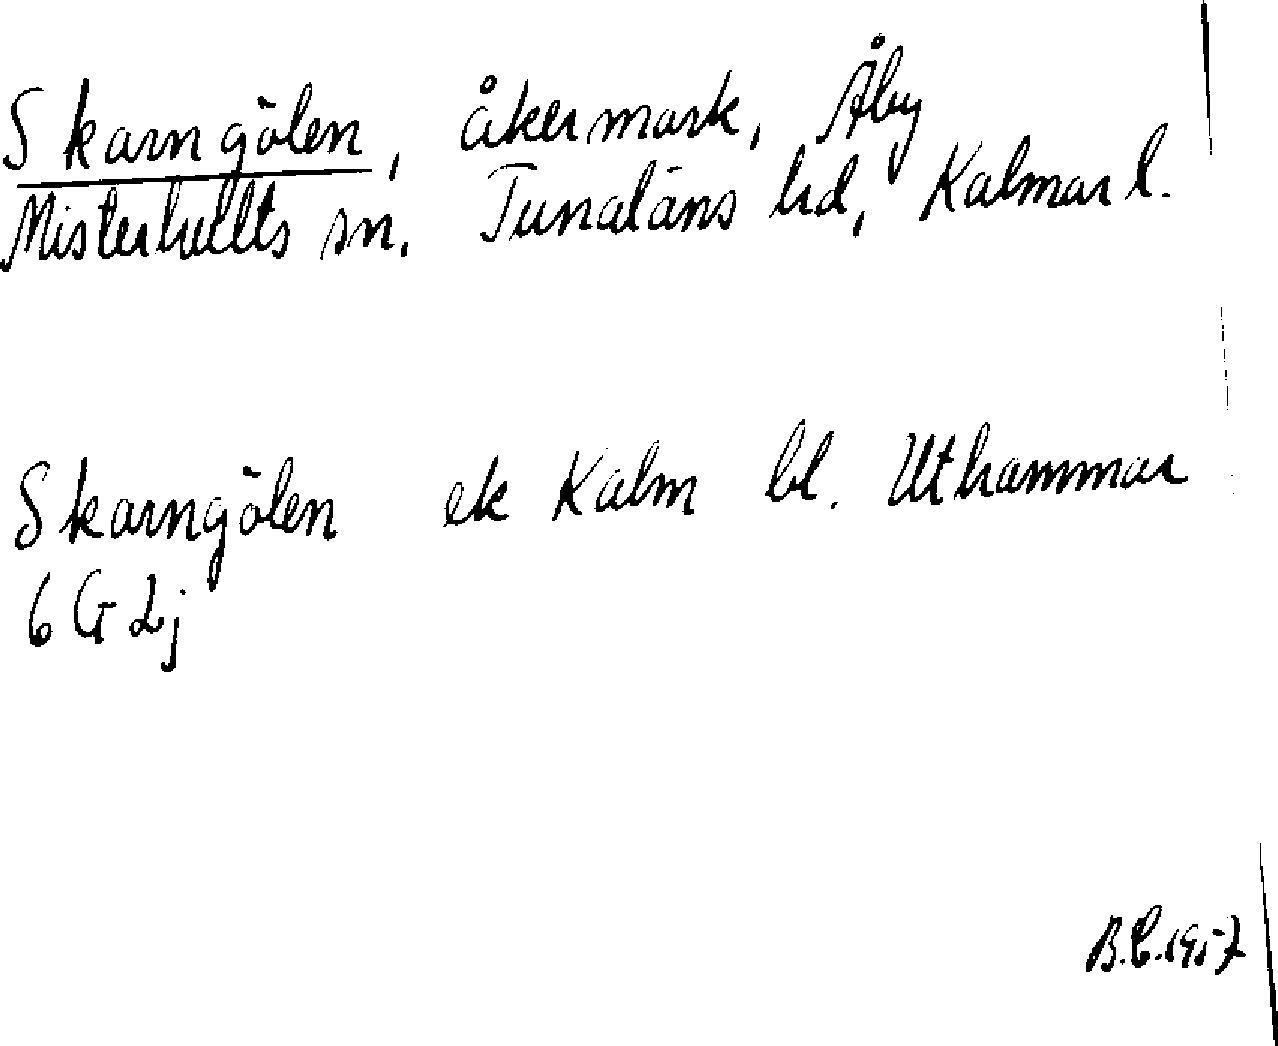 Skarngölen, åkermark, Åby
Misterhults sn. Tunaläns hd, Kalmar l.
Skarngölen ek Kalm bl. Uthammar
6 G 2j
B.C. 1957